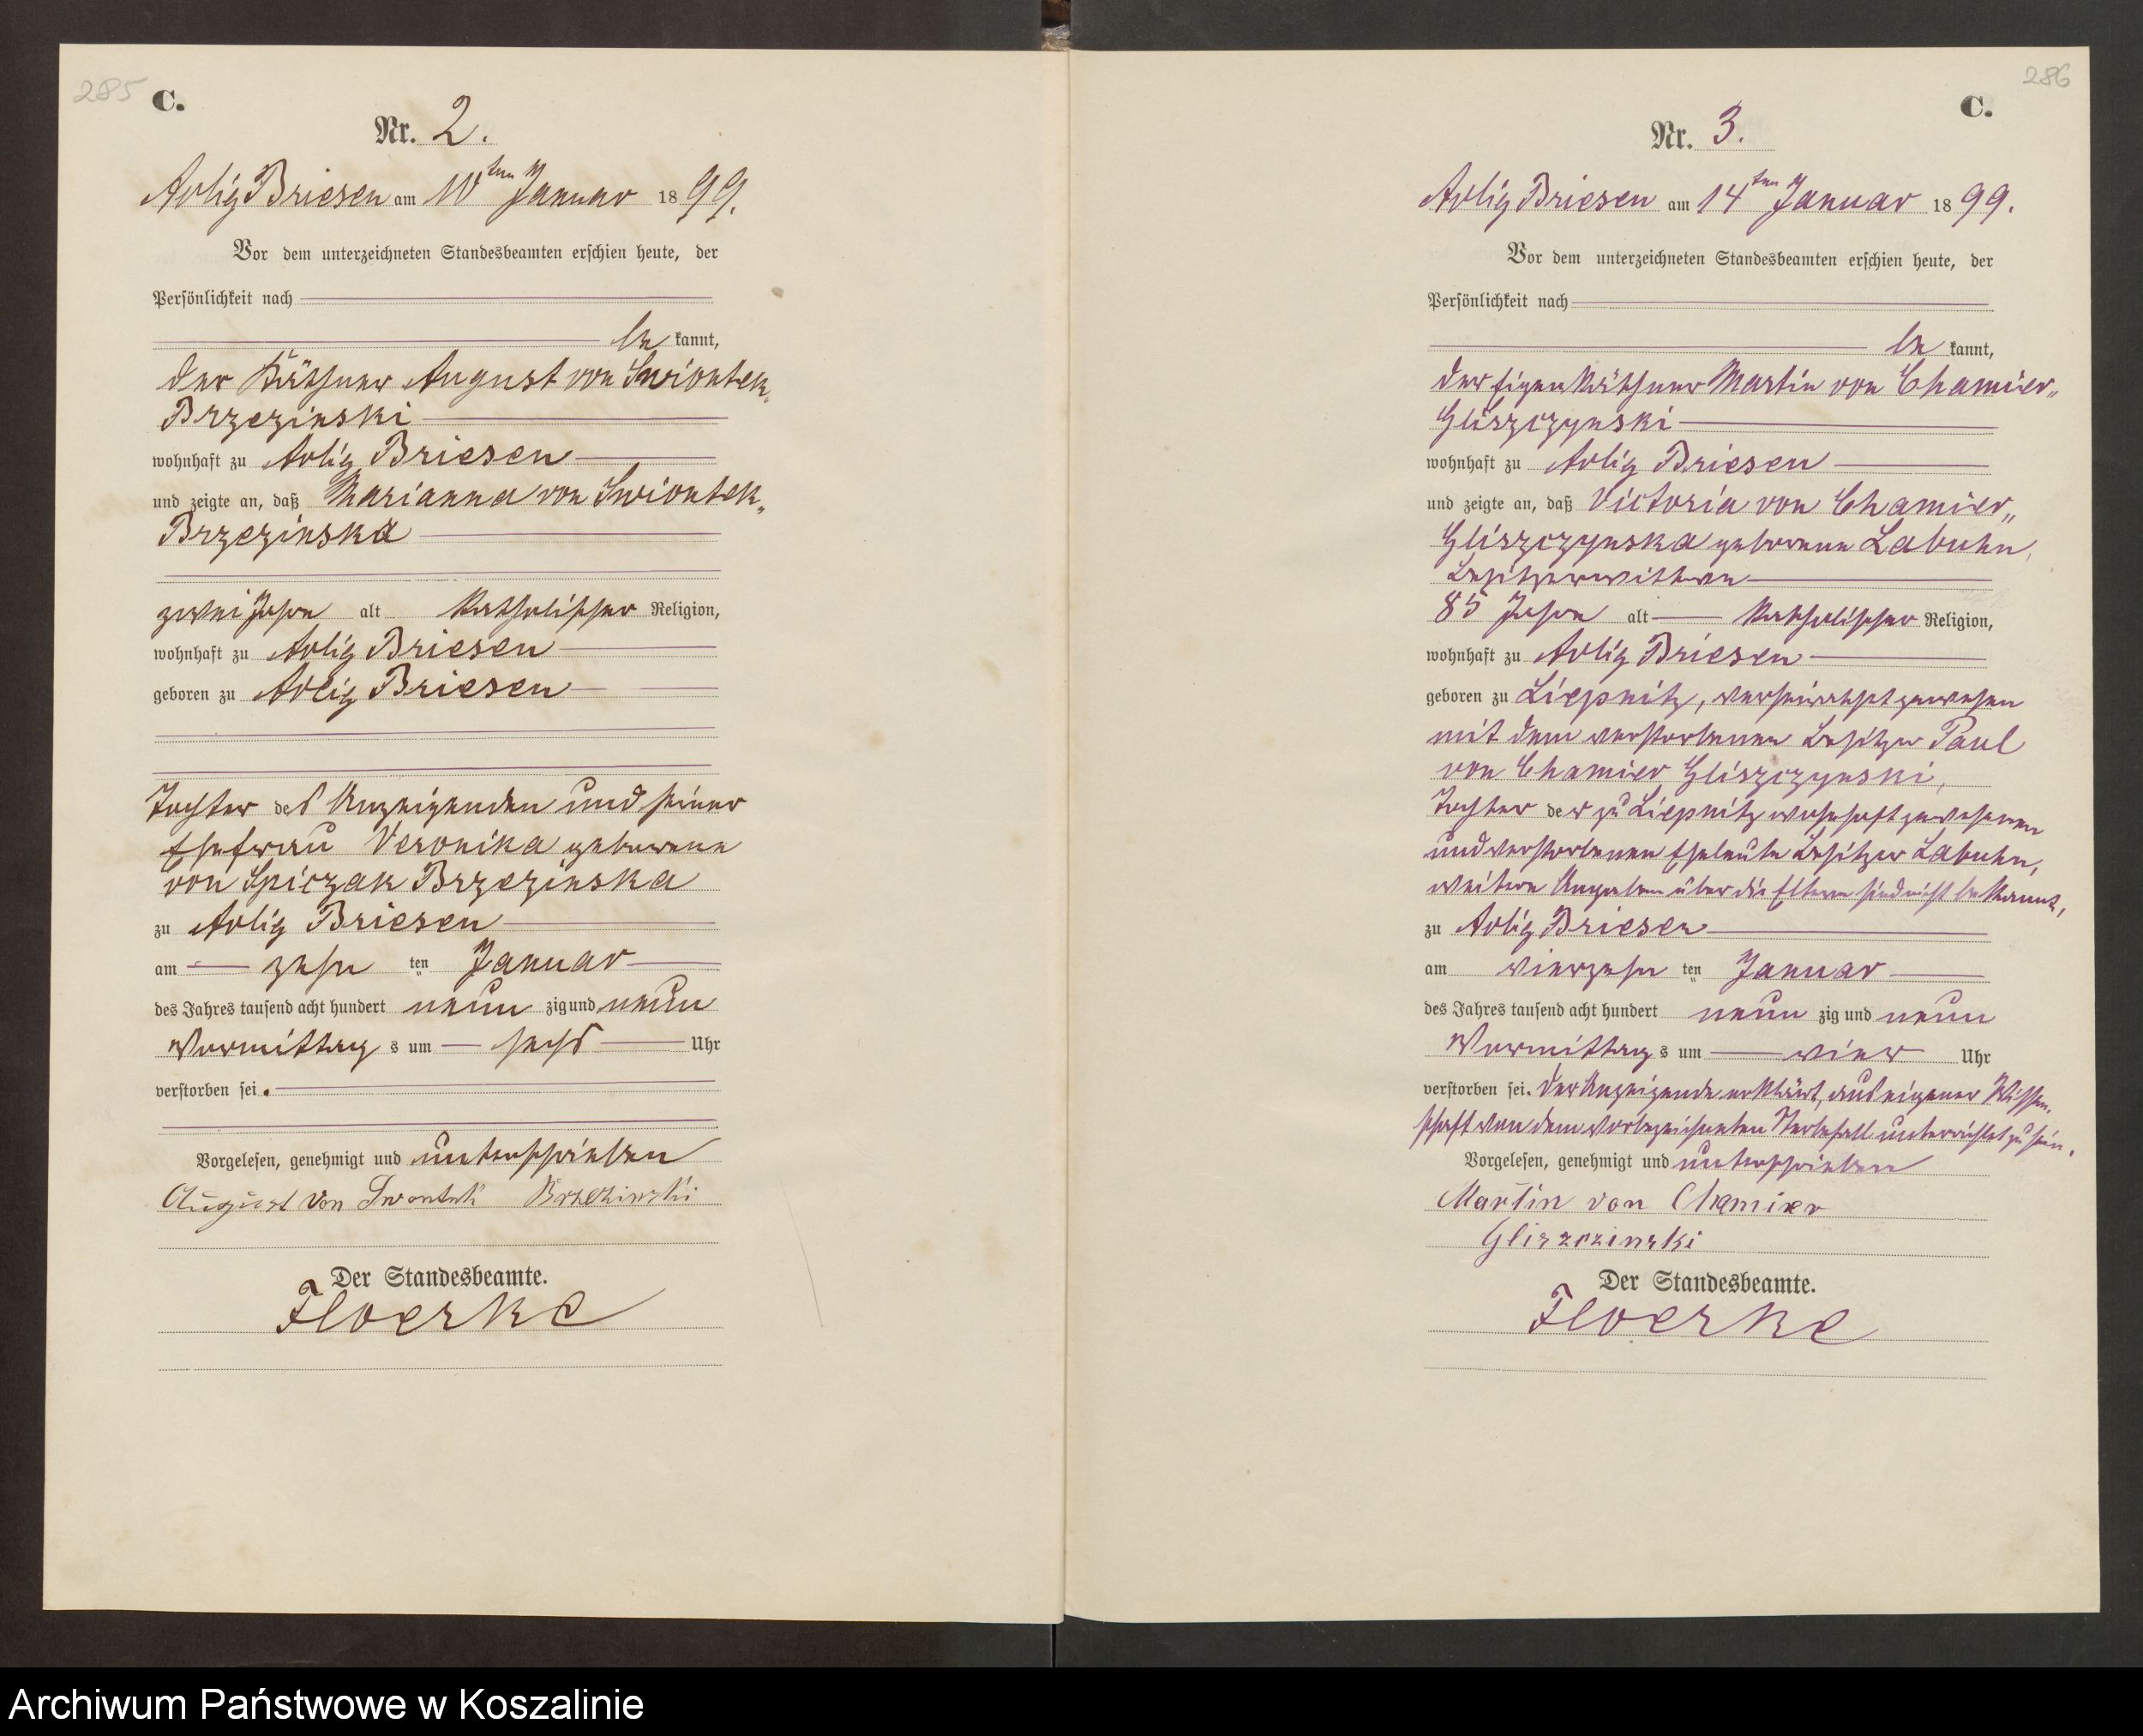 285
C.
Nr. 2.
Adlig Briesen am 10ten Januar 1899.
Vor dem unterzeichneten Standesbeamten erschien heute, der
Persönlichkeit nach
be kannt,
der Käthner August von Swiontek-
Brzezinski
wohnhaft zu Adlig Briesen
und zeigte an, daß Marianna von Swiontek-
Brzezinska
zwei Jahre alt katholischer Religion,
wohnhaft zu Adlig Briesen
geboren zu Adlig Briesen
Tochter des Anzeigenden und seiner
Ehefrau Veronika geborene
von Spiczak Brzezinska
zu Adlig Briesen
am zehn ten Januar
des Jahres tausend acht hundert neun zig und neun
Vormittag s um sechs Uhr
verstorben sei.
Vorgelesen, genehmigt und unterschrieben
August von Swontek Brzezinski
Der Standesbeamte.
Floerke
286
C.
Nr. 3.
Adlig Briesen am 14ten Januar 1899.
Vor dem unterzeichneten Standesbeamten erschien heute, der
Persönlichkeit nach
be kannt,
der Eigenkäthner Martin von Chamier-
Gliszczynski
wohnhaft zu Adlig Briesen
und zeigte an, daß Victoria von Chamier-
Gliszczynska geborene Labuhn,
Besitzerwittwe
85 Jahre alt katholischer Religion,
wohnhaft zu Adlig Briesen
geboren zu Liepnitz, verheirathet gewesen
mit dem verstorbenen Besitzer Paul
von Chamier Gliszczynski,
Tochter der zu Liepnitz wohnhaft gewesenen
und verstorbenen Eheleute Besitzer Labuhn,
weitere Angaben über die Eltern sind nicht bekannt,
zu Adlig Briesen
am vierzehn ten Januar
des Jahres tausend acht hundert neun zig und neun
Vormittag s um vier Uhr
verstorben sei. Der Anzeigende erklärt, aus eigener Wissen-
schaft von dem vorbezeichneten Sterbefall unterrichtet zu sein.
Vorgelesen, genehmigt und unterschrieben
Martin von Chamier
Gliszczinski
Der Standesbeamte.
Floerke
Archiwum Państwowe w Koszalinie